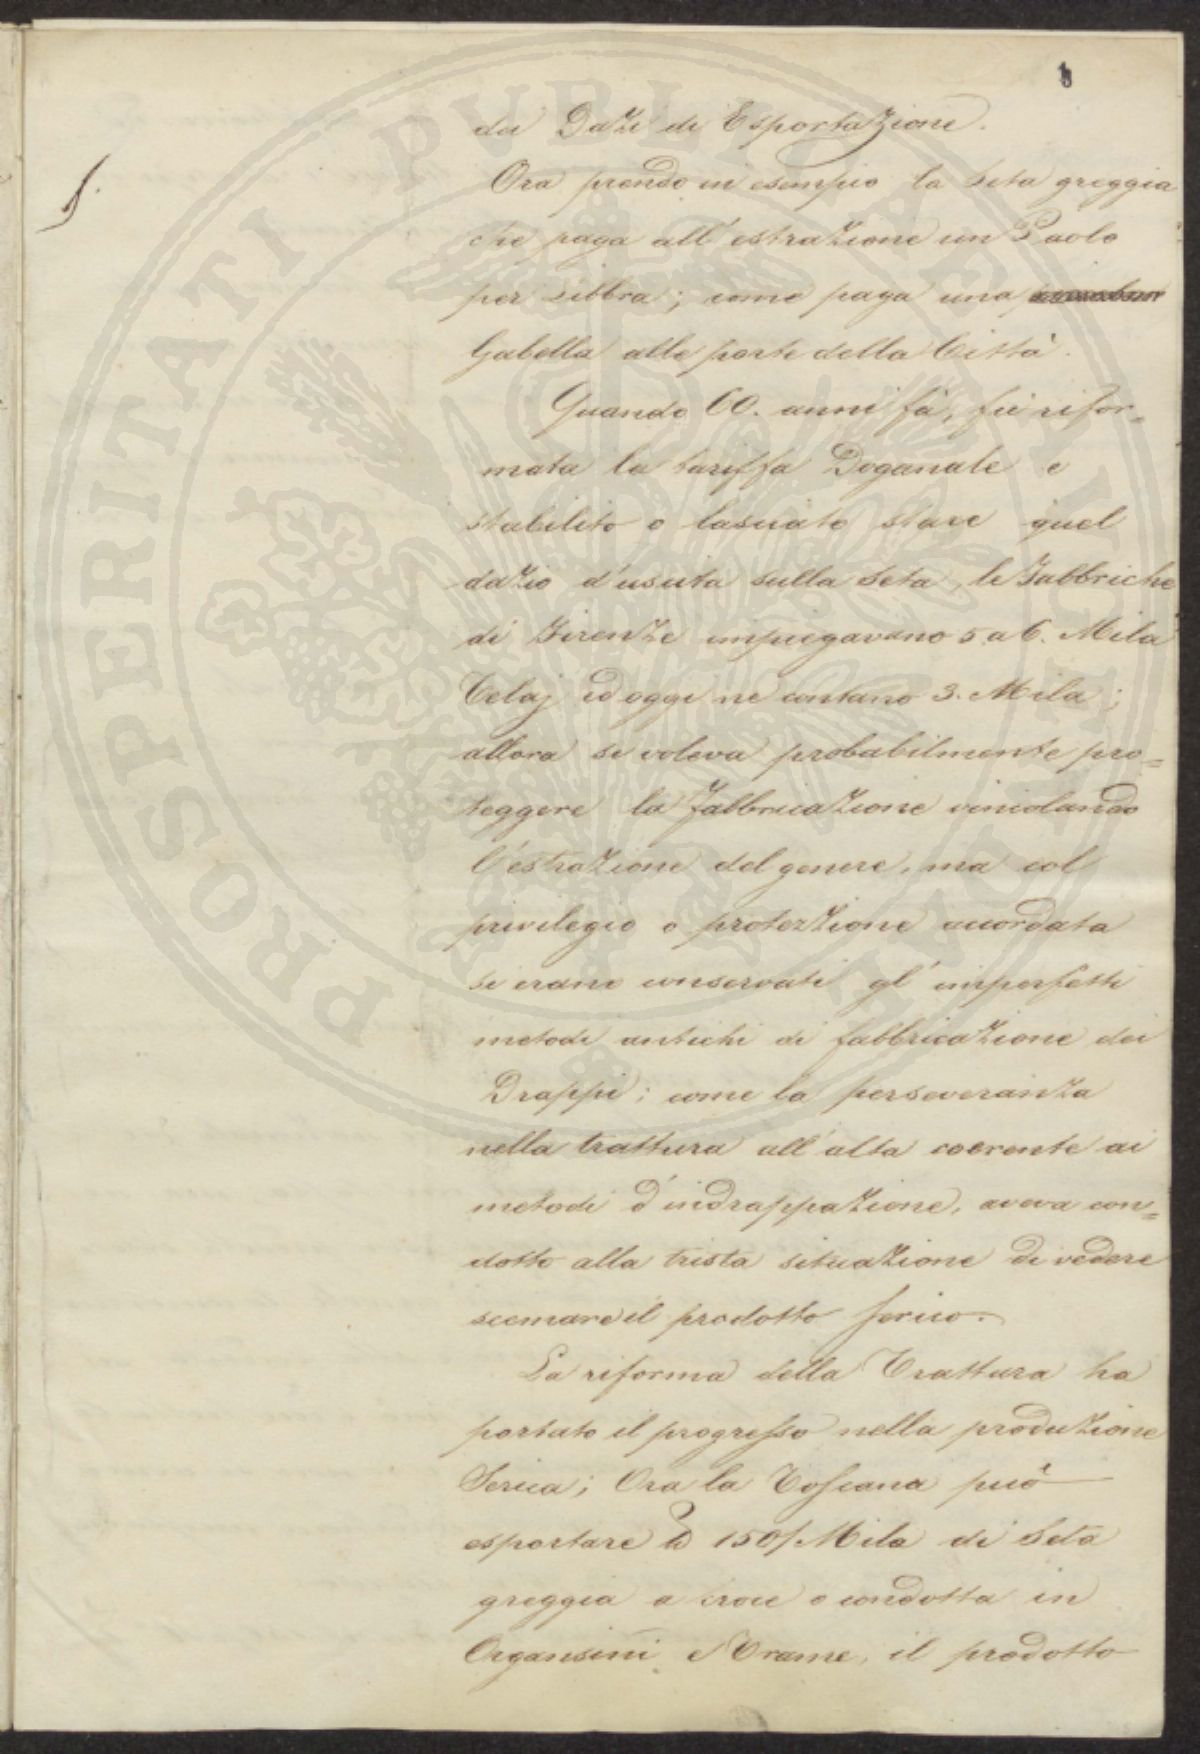 dei Dazi di Esportazione.
Ora prendo in esempio la Seta greggia
che paga all'estrazione un Paolo
per Libbra; come paga una
Gabella alle porte della Città.
Quando 60. anni fà, fù rifor=
mata la tariffa Doganale e
stabilito o lasciato stare quel
dazio d'uscita sulla Seta, le Fabbriche
di Firenze impiegavano 5 a 6. Mila
Telaj ed oggi ne contano 3. Mila;
allora si voleva probabilmente pro=
teggere la fabbricazione vincolando
l'estrazione del genere, ma col
privilegio o protezzione accordata
si erano conservati gl'imperfetti
metodi antichi di fabbricazione dei
Drappi; come la perseveranza
nella trattura all'alta coerente ai
metodi d'indrappazione, aveva con=
dotto alla trista situazione di vedere
scemare il prodotto serico.
La riforma della Trattura ha
portato il progresso nella produzione
Serica; Ora la Toscana può
esportare 150/Mila di Seta
greggia a croce o condotta in
Organsini e Trame, il prodotto
PROSPERITATI PVBLICAE